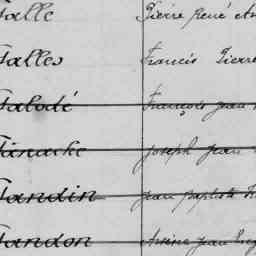 Talle Pierre René An
Talles Francis Pierre
Talodé François Jean
Tanache Joseph Jean
Tandin Jean Baptiste
Tandon Jean